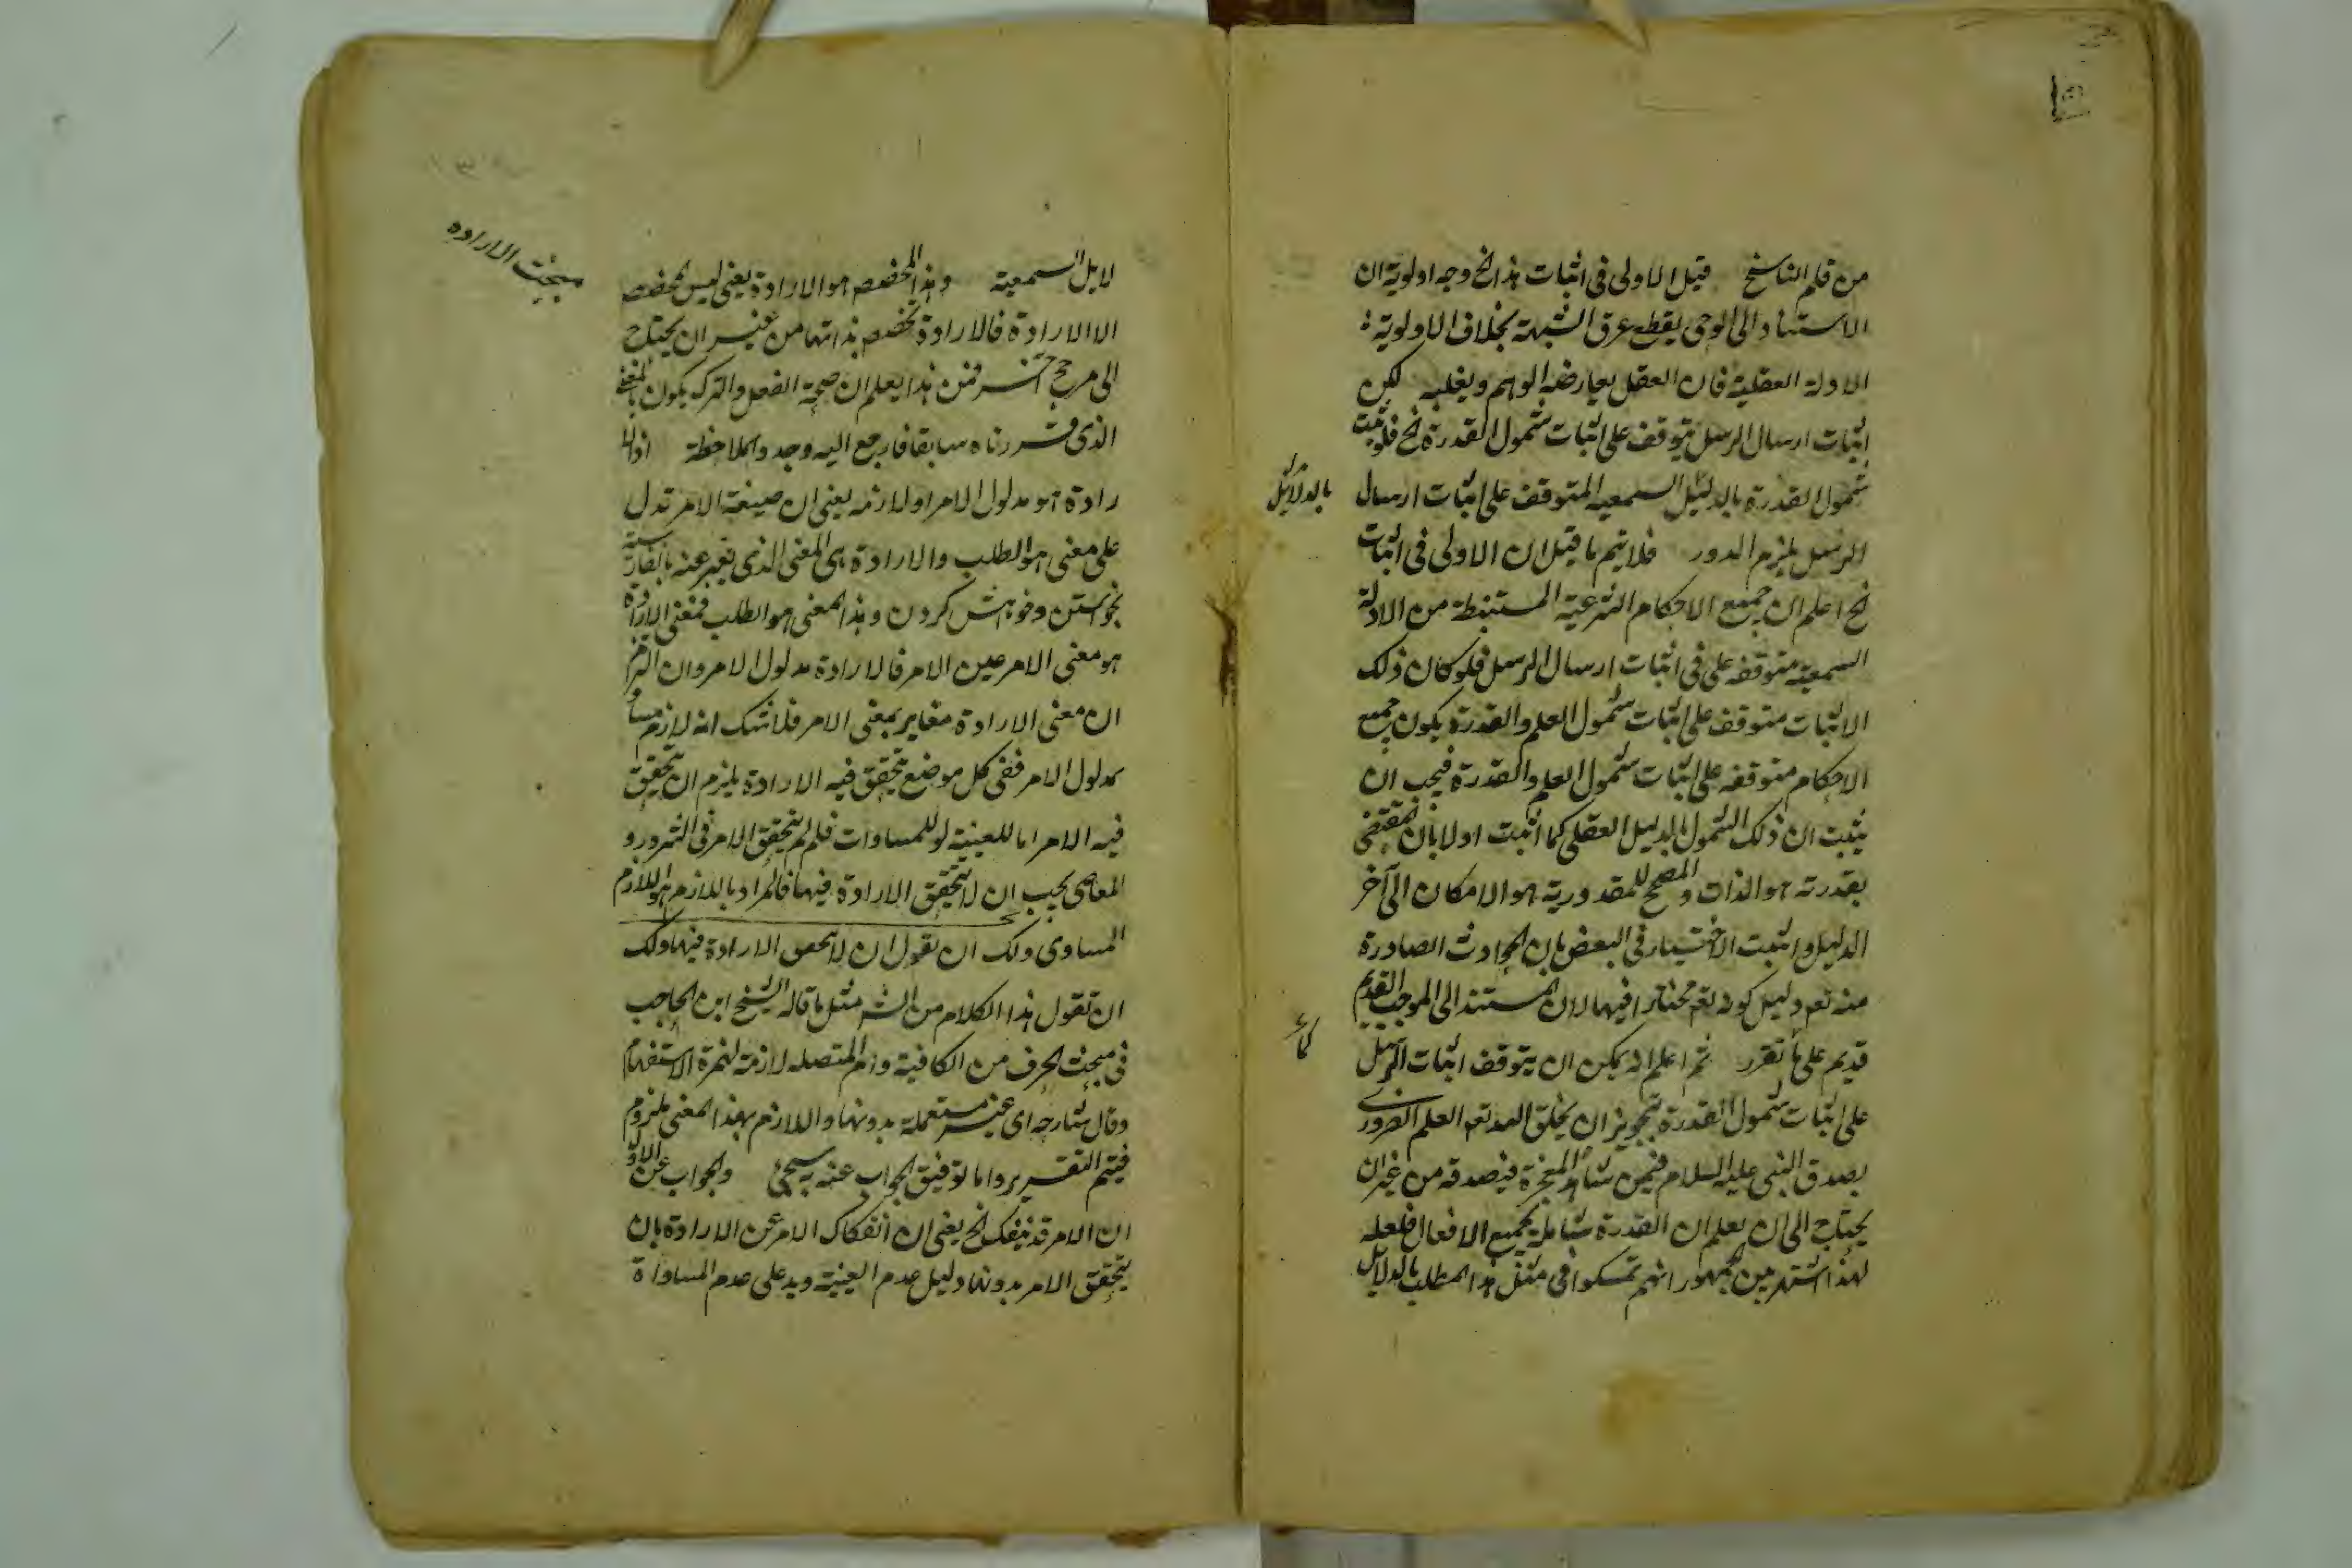 من قلم الناسخ قيل الاولى فى اثبات هذا الخ وجه اولوية ان
الاستناد الى الوحى يقطع عرق الشبهة بخلاف الاولوية
الادلة العقلية فان العقل يعارضه الوهم ويغلبه لكن
اثبات ارسال الرسل يتوقف على اثبات شمول القدرة الخ فلو ثبت
شمول القدرة بالدليل السمعيه المتوقف على اثبات ارسال
بالدلائل
الرسل يلزم الدور فلا يتم ما قيل ان الاولى فى اثبات
الخ اعلم ان جميع الاحكام الشرعية المستنبطة من الادلة
السمعية متوقفه على فى اثبات ارسال الرسل فلو كان ذلك
الاثبات متوقف على اثبات شمول العلم والقدرة يكون جميع
الاحكام متوقفه على اثبات شمول العلم والقدرة فيجب ان
يثبت ان ذلك الشمول بالدليل العقلى كما اثبت اولا بان مقتضى
بقدرته هو الذات والمصحح للمقدورية هو الامكان الى آخر
الدليل واثبت الاختيار فى البعض بان الحوادث الصادرة
منه تعم دليل كونه تعم مختارا فيها لان المستند الى الموجب القديم
قديم على ما تقرر ثم اعلم انه يمكن ان يتوقف اثبات الرسل
كما
على اثبات شمول القدرة بتجويز ان يخلق الله تعم العلم الضرورى
بصدق النبى عليه السلام فيمن شاهد المعجزة فيصدقه من غير ان
يحتاج الى ان يعلم ان القدرة شاملة لجميع الافعال فلعله
لهذا اشتهر بين الجمهور انهم تمسكوا فى مثل هذا المطلب بالدلائل
مبحث الارادة
لايل السمعية وهذا المخصص هو الارادة يعنى ليس مخصص
الا الارادة فالارادة تخصص بذاتها من غير ان يحتاج
الى مرجح آخر فمن هذا يعلم ان صحة الفعل والترك يكون بالمعنى
الذى قررناه سابقا فارجع اليه وجد والملاحظة اذ الا
رادة هو مدلول الامر او لازمه يعنى ان صيغة الامر تدل
على معنى هو الطلب والارادة هى المعنى الذى نعبر عنه بالفارسية
بخواستن وخواهش كردن وهذا المعنى هو الطلب فمعنى الارادة
هو معنى الامر عين الامر فالارادة مدلول الامر وان التزم
ان معنى الارادة مغاير بمعنى الامر فلا شك انه لازم مساو
لمدلول الامر ففى كل موضع تحقق فيه الارادة يلزم ان يتحقق
فيه الامر اما للعينية او للمساوات فلم لم يتحقق الامر فى الشرور و
المعاصى يجب ان لا يتحقق الارادة فيها فالمراد باللازم هو اللازم
المساوى ولك ان تقول ان لا تحقق الارادة فيها ولك
ان تقول هذا الكلام من الش مثل ما قاله الشيخ ابن الحاجب
فى مبحث الحرف من الكافية وام المتصله لازمة لهمزة الاستفهام
وقال شارحه اى غير مستعملة بدونها واللازم بهذا المعنى ملزوم
فيتم التقرير واما توفيق الجواب عنه سيجئ والجواب عن الاول
ان الامر قد ينفك الخ يعنى ان انفكاك الامر عن الارادة بان
يتحقق الامر بدونها دليل عدم العينية ويدعلى عدم المساواة